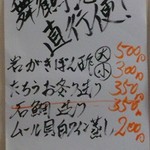 舞鶴
直行便!
岩がきぽん酢 大 500円
小 300円
たちうお炙り造り 350円
石鯛造り 350円
ムール貝白ワイン蒸し 200円